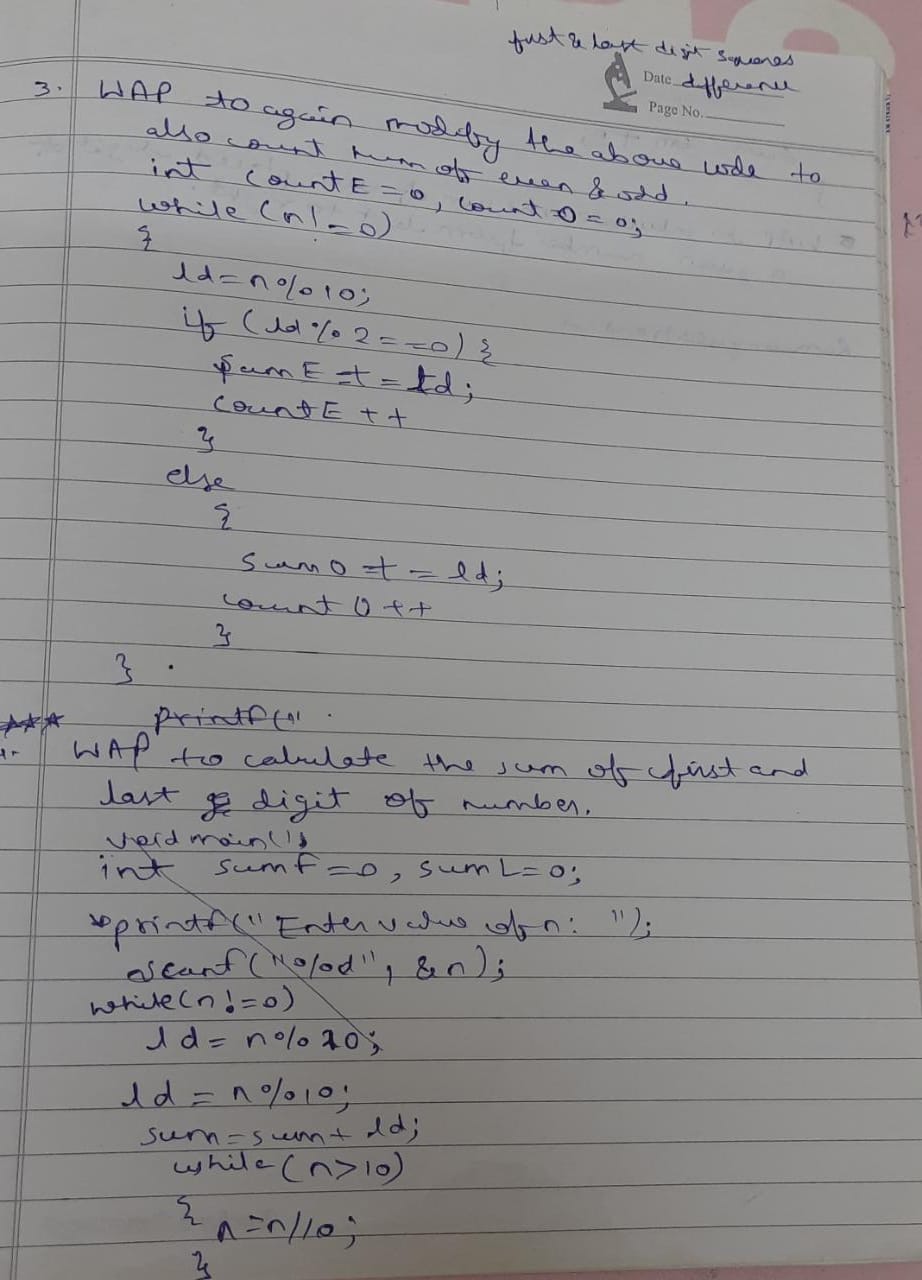 first & last digit squares
difference
Date
Page No.
3. WAP to again modify the above code to
also count num of even & odd.
int countE=0, countO=0;
while (n!=0)
{
ld=n%10;
if (ld%2==0) {
sumE+=ld;
countE++
}
else
{
sumO+=ld;
countO++
}
}
*** printf("
1. WAP to calculate the sum of first and
last digit of number.
void main()
int sumf=0, sumL=0;
printf("Enter value of n: ");
scanf("%d", &n);
while(n!=0)
ld=n%10;
ld=n%10;
sum=sum+ld;
while(n>10)
{
n=n/10;
}